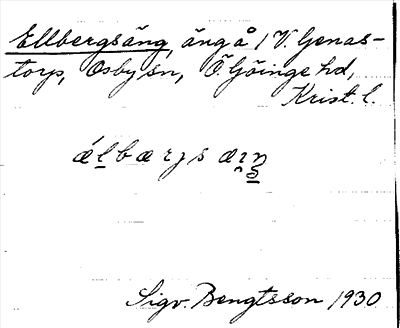 Ellbergsäng, äng å 1 V. Genas-
torp, Osby sn, Ö. Göinge hd,
Krist. l.
Sigv. Bengtsson 1930